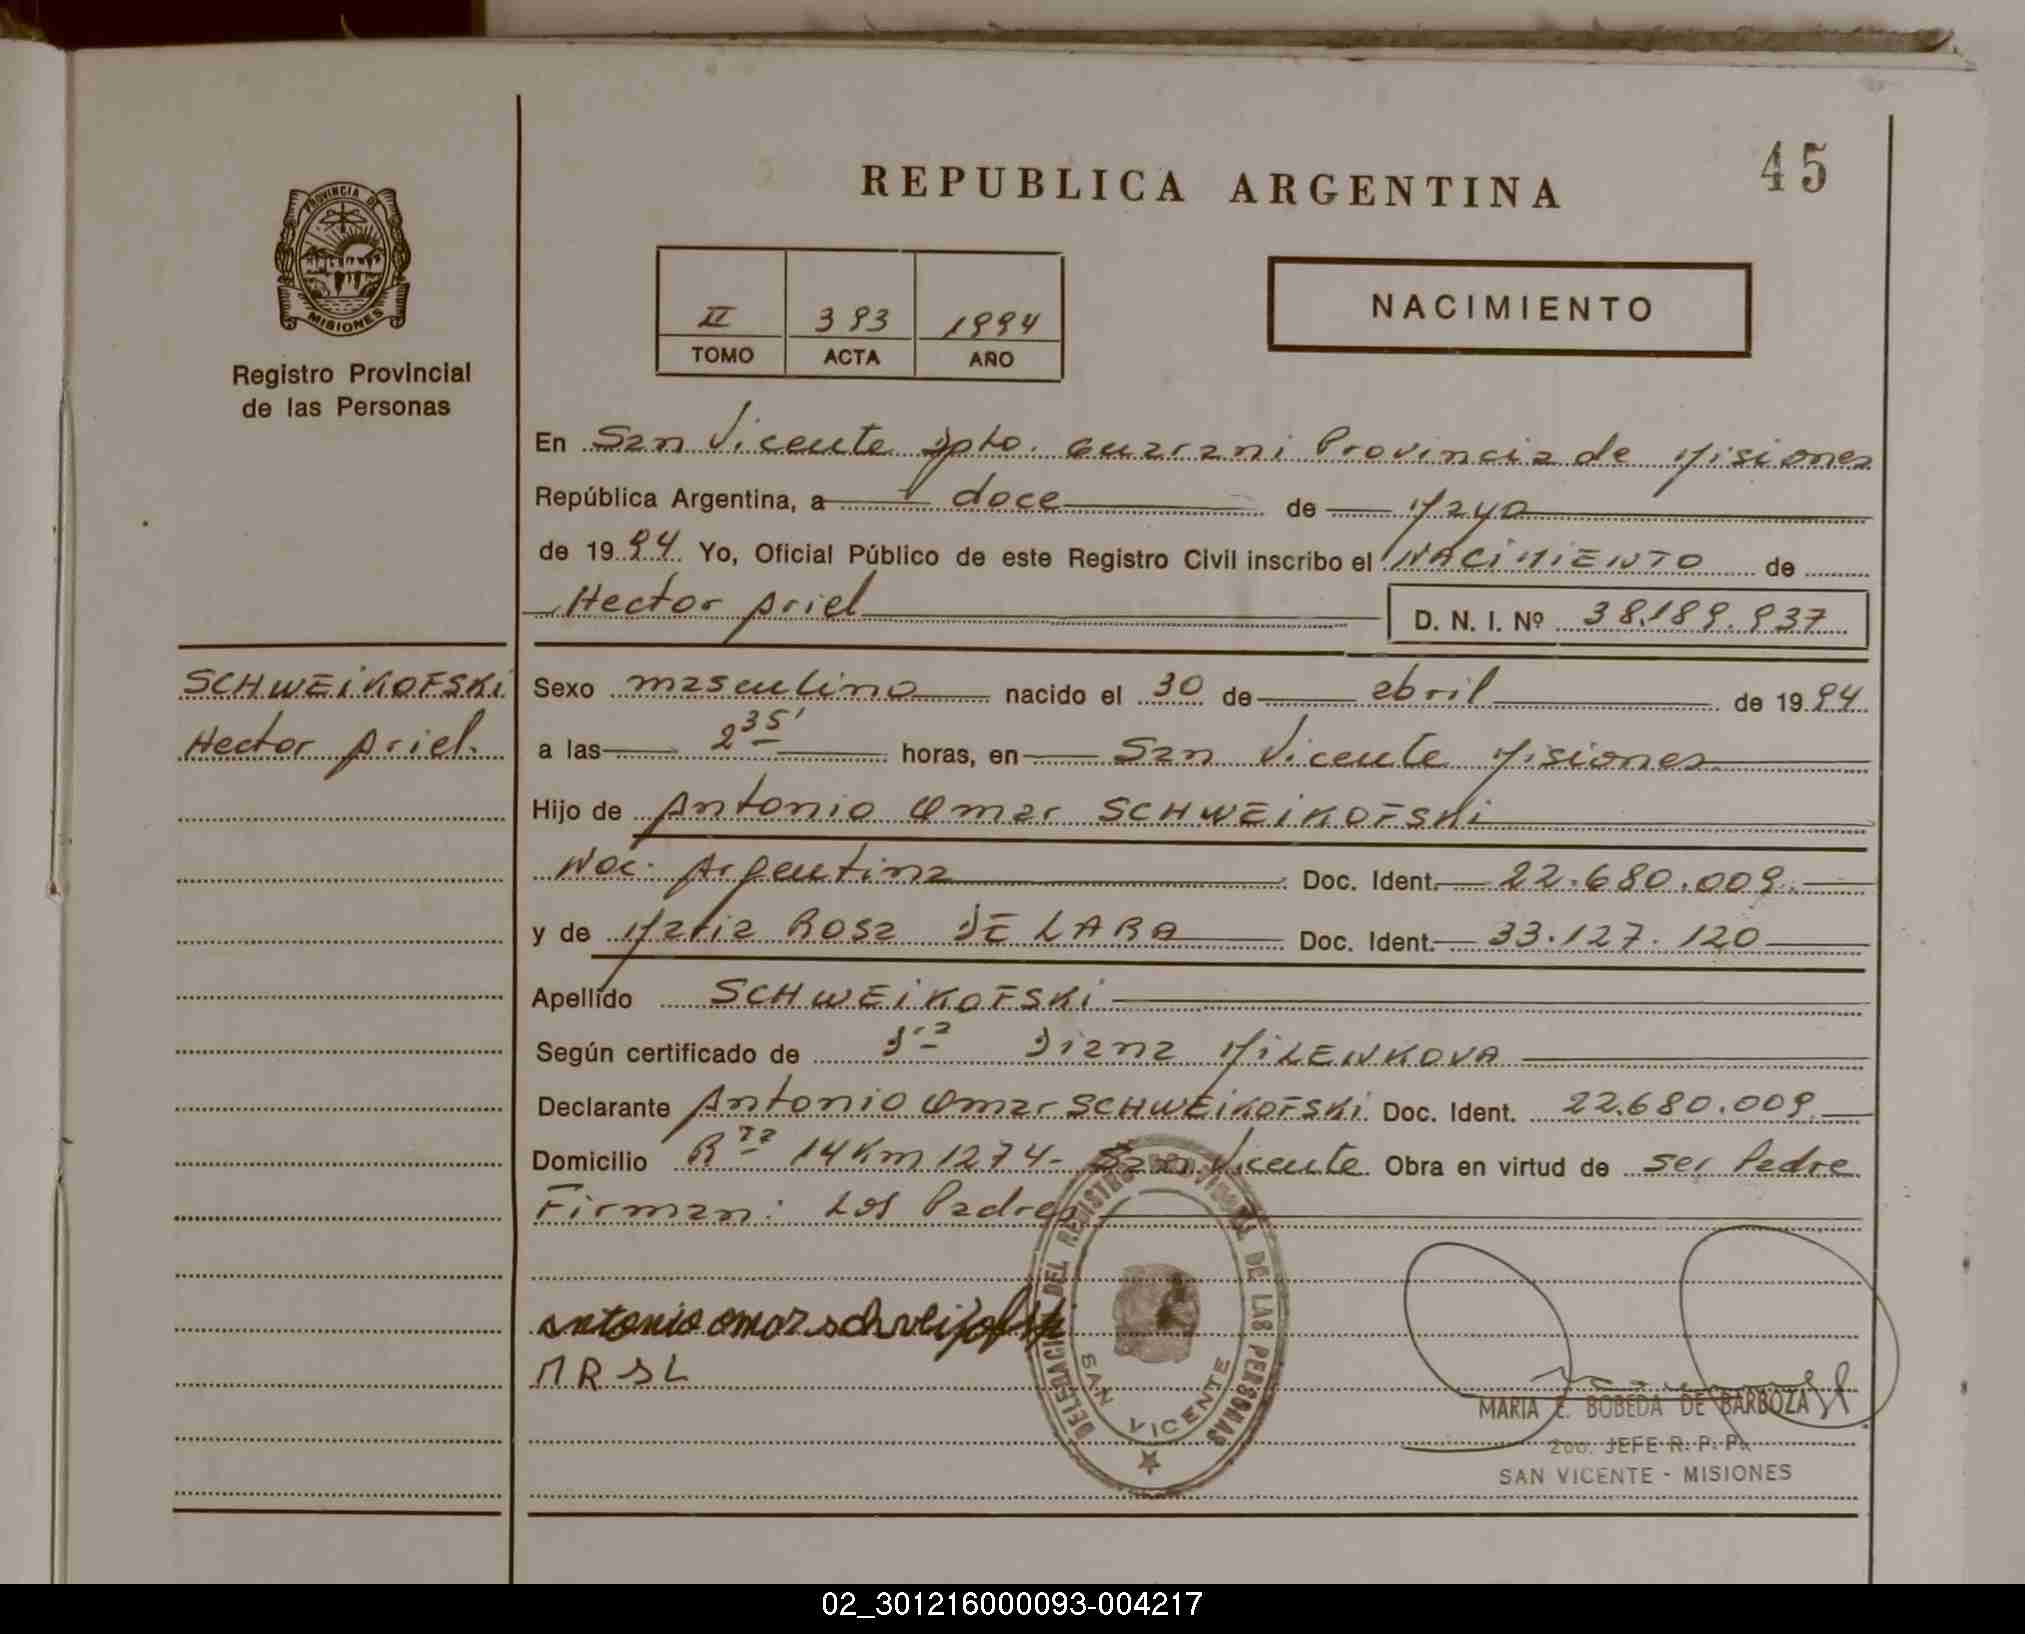 45
REPUBLICA ARGENTINA
PROVINCIA DE
MISIONES
Registro Provincial
de las Personas
II 393 1994
TOMO ACTA AÑO
NACIMIENTO
En San Vicente Dpto. Guarani Provincia de Misiones
República Argentina, a doce de Mayo
de 1994 Yo, Oficial Público de este Registro Civil inscribo el NACIMIENTO de
Hector Ariel D. N. I. Nº 38.189.937
SCHWEIKOFSKI
Hector Ariel.
Sexo masculino nacido el 30 de abril de 1994
a las 2 35' horas, en San Vicente Misiones
Hijo de Antonio Omar SCHWEIKOFSKI
Nac. Argentina Doc. Ident. 22.680.009.
y de Maria Rosa DE LARA Doc. Ident. 33.127.120
Apellido SCHWEIKOFSKI
Según certificado de Dra Diana MILENKOVA
Declarante Antonio Omar SCHWEIKOFSKI Doc. Ident. 22.680.009.
Domicilio Rta 14 Km 1274- San Vicente Obra en virtud de ser Padre
Firman: Los Padres
antonio omar
M R D L
DELEGACION DEL REGISTRO PROVINCIAL DE LAS PERSONAS
SAN VICENTE
MARIA E. BOBEDA DE BARBOZA
2do. JEFE R. P. P.
SAN VICENTE - MISIONES
02_301216000093-004217